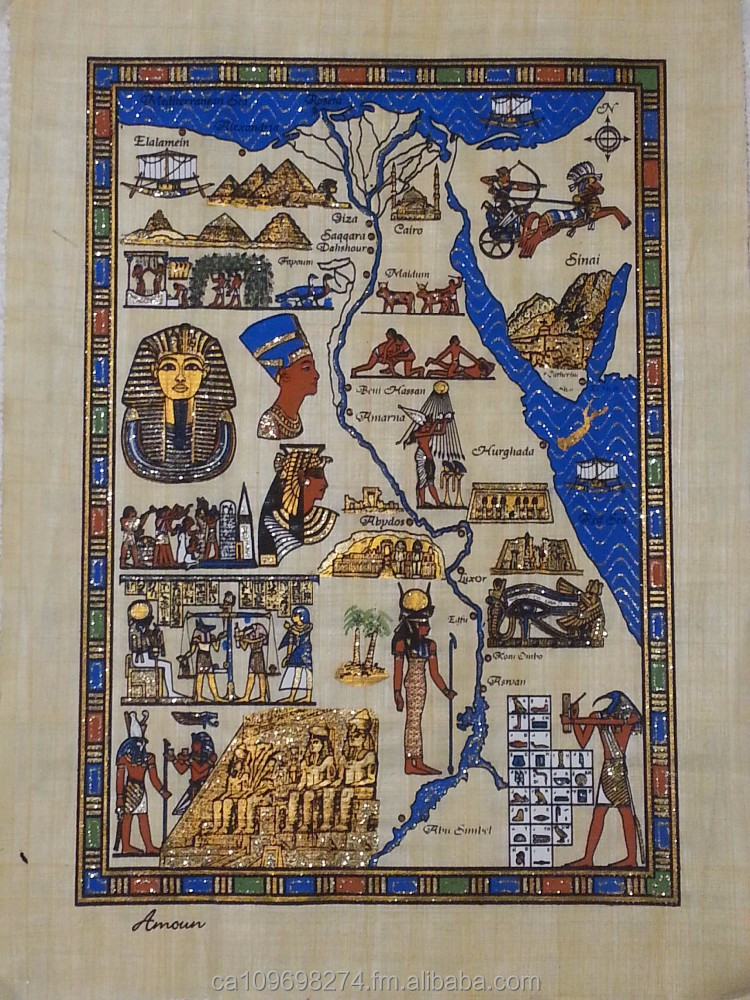 Mediterranean Sea
Rosetta
Alexandria
Elalamein
N
Giza
Cairo
Saqqara
Dahshour
Fayoum
Sinai
Maidum
Beni Hassan
Amarna
Hurghada
Abydos
Red Sea
Luxor
Edfu
Kom Ombo
Aswan
Abu Simbel
Amoun
ca109698274.fm.alibaba.com